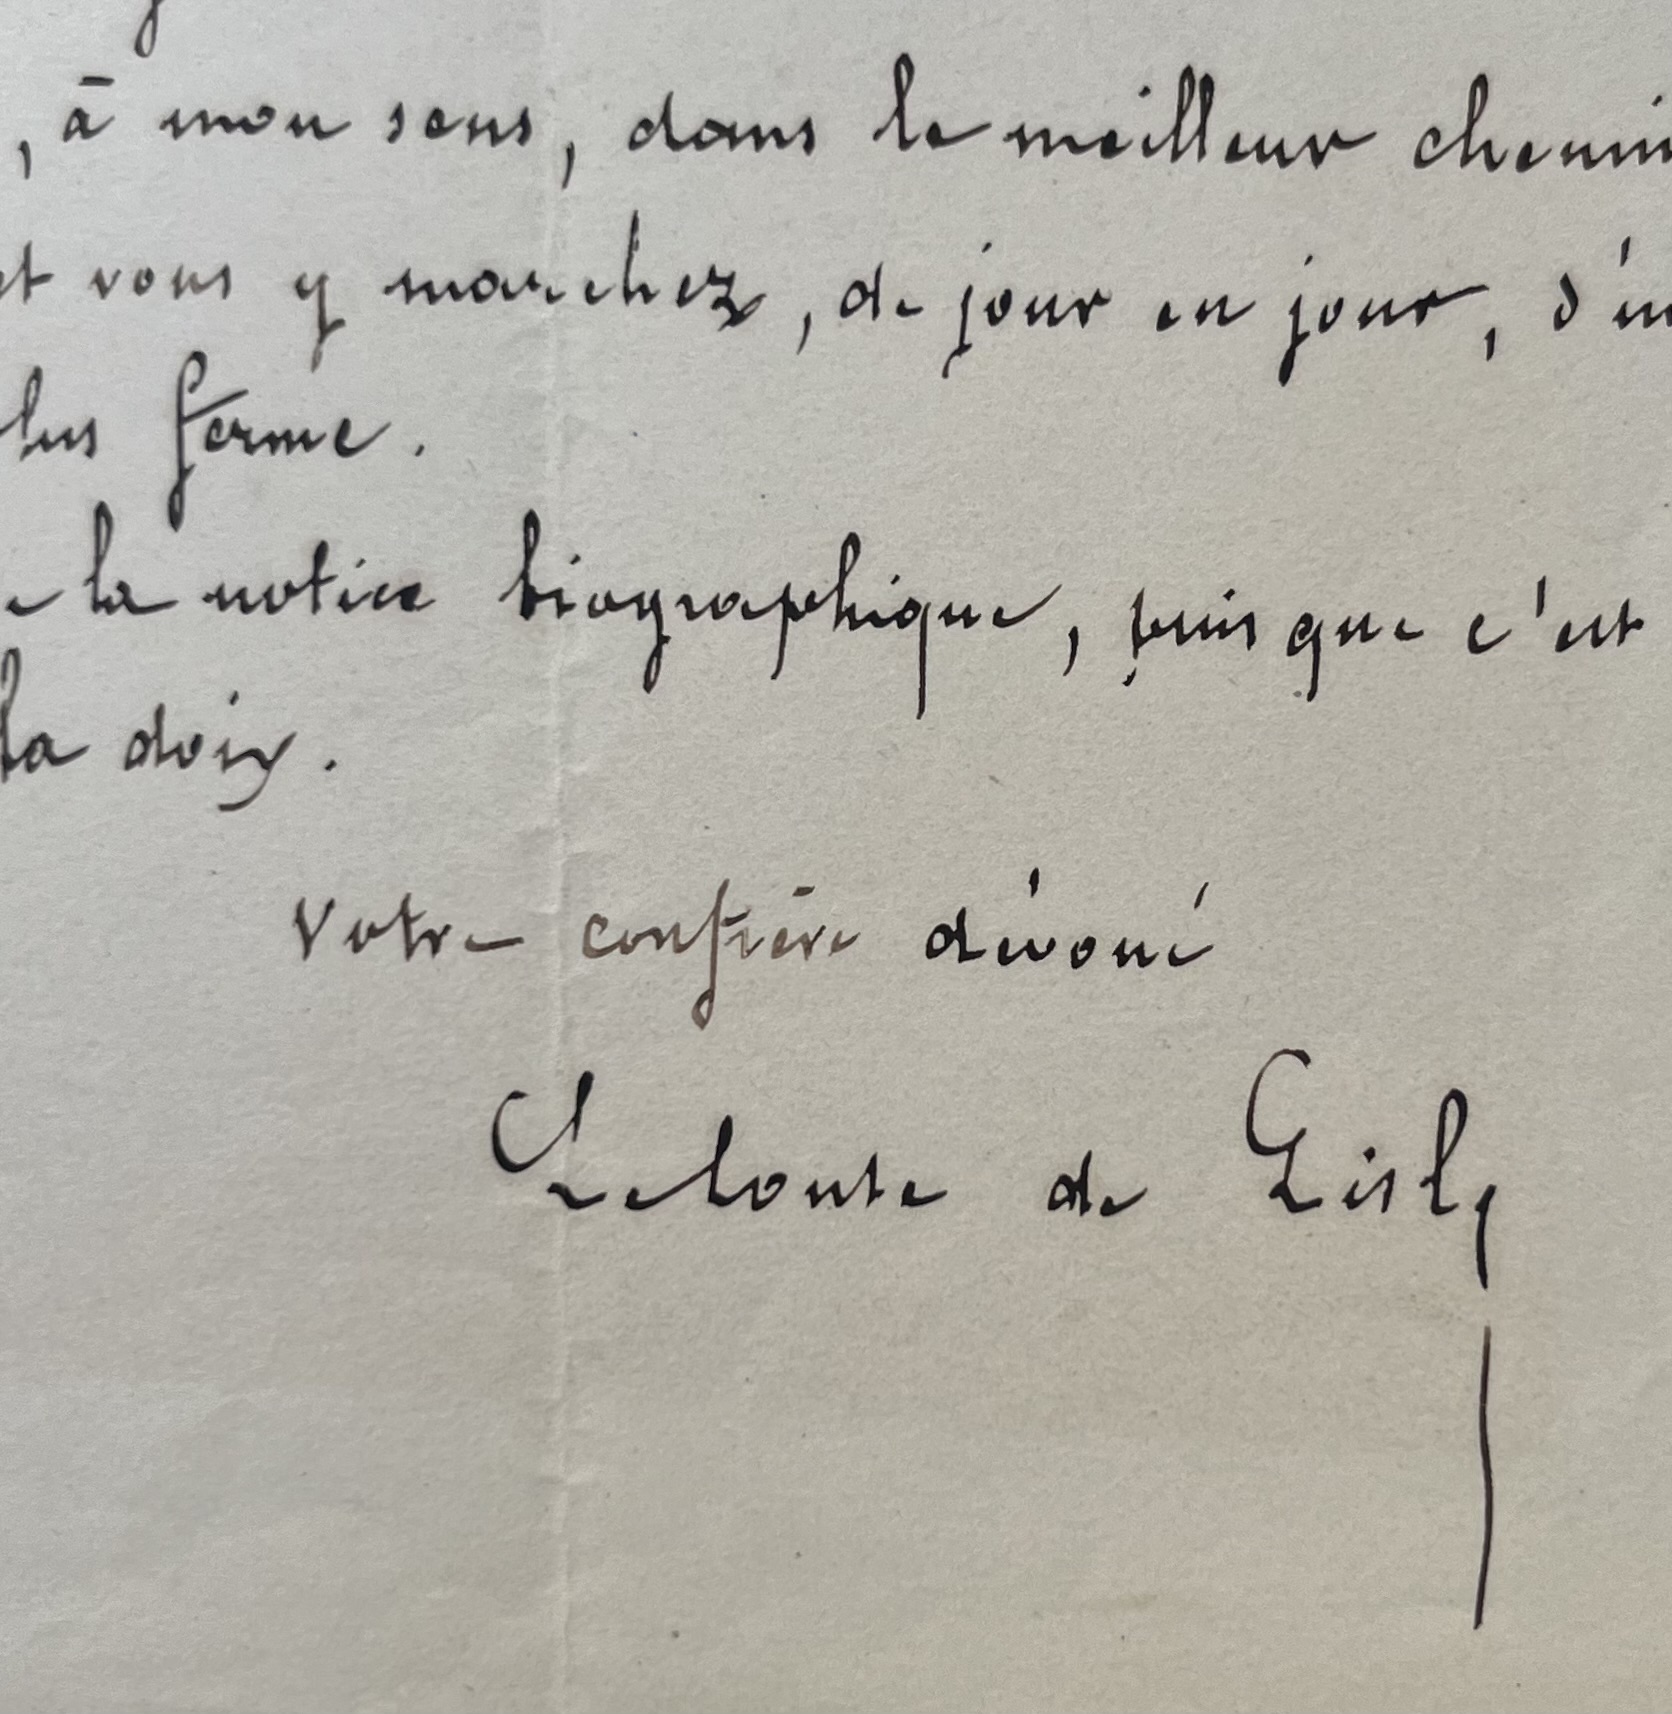 , à mon sens, dans le meilleur chemin
et vous y marchez, de jour en jour, d'un
lus ferme.
e la notice biographique, puisque c'est
la doix.
Votre confrère dévoué
Leconte de Lisle